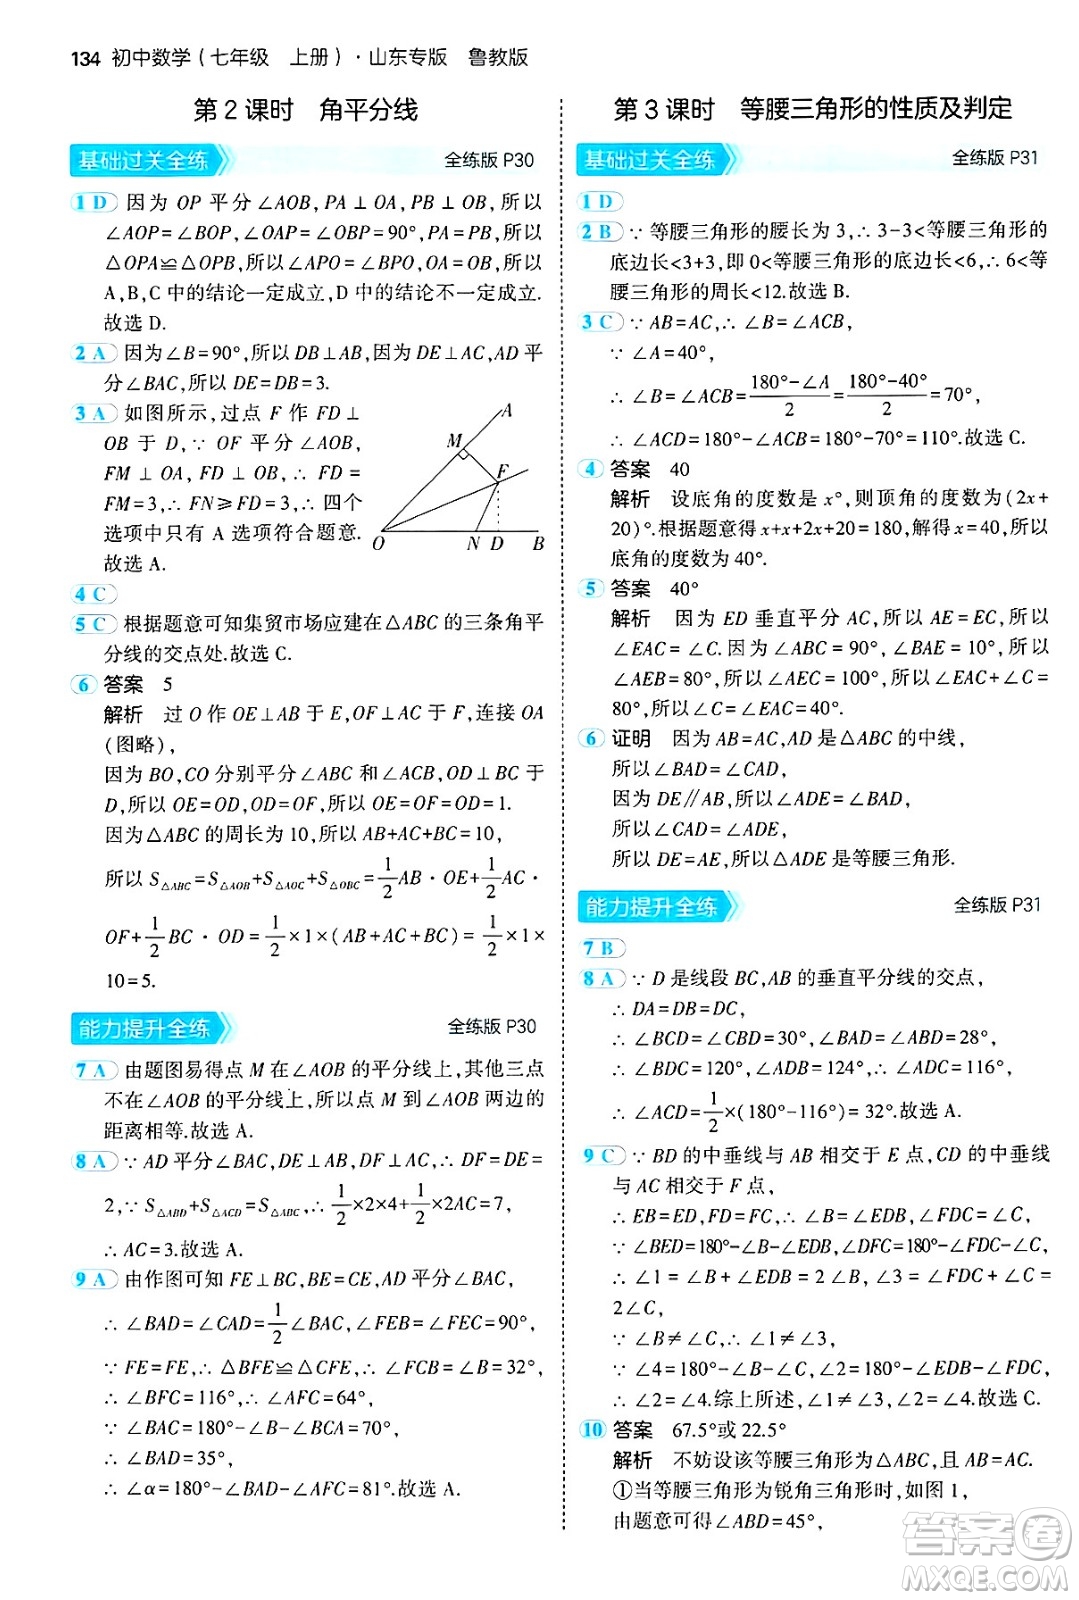 134 初中数学(七年级 上册)·山东专版 鲁教版
第2课时 角平分线
基础过关全练 全练版 P30
1 D 因为 OP 平分∠AOB,PA⊥OA,PB⊥OB,所以
∠AOP=∠BOP,∠OAP=∠OBP=90°,PA=PB,所以
△OPA≌△OPB,所以∠APO=∠BPO,OA=OB,所以
A,B,C 中的结论一定成立,D 中的结论不一定成立.
故选 D.
2 A 因为∠B=90°,所以 DB⊥AB,因为 DE⊥AC,AD 平
分∠BAC,所以 DE=DB=3.
3 A 如图所示,过点 F 作 FD⊥
OB 于 D,∵ OF 平分∠AOB,
FM⊥OA,FD⊥OB,∴ FD=
FM=3,∴ FN≥FD=3,∴ 四个
选项中只有 A 选项符合题意.
故选 A.
A
M
F
O N D B
4 C
5 C 根据题意可知集贸市场应建在△ABC 的三条角平
分线的交点处.故选 C.
6 答案 5
解析 过 O 作 OE⊥AB 于 E,OF⊥AC 于 F,连接 OA
(图略),
因为 BO,CO 分别平分∠ABC 和∠ACB,OD⊥BC 于
D,所以 OE=OD,OD=OF,所以 OE=OF=OD=1.
因为△ABC 的周长为 10,所以 AB+AC+BC=10,
所以 S△ABC=S△AOB+S△AOC+S△OBC=1/2 AB·OE+1/2 AC·
OF+1/2 BC·OD=1/2×1×(AB+AC+BC)=1/2×1×
10=5.
能力提升全练 全练版 P30
7 A 由题图易得点 M 在∠AOB 的平分线上,其他三点
不在∠AOB 的平分线上,所以点 M 到∠AOB 两边的
距离相等.故选 A.
8 A ∵ AD 平分∠BAC,DE⊥AB,DF⊥AC,∴ DF=DE=
2,∵ S△ABD+S△ACD=S△ABC,∴ 1/2×2×4+1/2×2AC=7,
∴ AC=3.故选 A.
9 A 由作图可知 FE⊥BC,BE=CE,AD 平分∠BAC,
∴ ∠BAD=∠CAD=1/2∠BAC,∠FEB=∠FEC=90°,
∵ FE=FE,∴ △BFE≌△CFE,∴ ∠FCB=∠B=32°,
∴ ∠BFC=116°,∴ ∠AFC=64°,
∵ ∠BAC=180°-∠B-∠ACB=70°,
∴ ∠BAD=35°,
∴ ∠α=180°-∠BAD-∠AFC=81°.故选 A.
第3课时 等腰三角形的性质及判定
基础过关全练 全练版 P31
1 D
2 B ∵ 等腰三角形的腰长为 3,∴ 3-3<等腰三角形的
底边长<3+3,即 0<等腰三角形的底边长<6,∴ 6<等
腰三角形的周长<12.故选 B.
3 C ∵ AB=AC,∴ ∠B=∠ACB,
∵ ∠A=40°,
∴ ∠B=∠ACB=(180°-∠A)/2=(180°-40°)/2=70°,
∴ ∠ACD=180°-∠ACB=180°-70°=110°.故选 C.
4 答案 40
解析 设底角的度数是 x°,则顶角的度数为(2x+
20)°.根据题意得 x+x+2x+20=180,解得 x=40,所以
底角的度数为 40°.
5 答案 40°
解析 因为 ED 垂直平分 AC,所以 AE=EC,所以
∠EAC=∠C.因为∠ABC=90°,∠BAE=10°,所以
∠AEB=80°,所以∠AEC=100°,所以∠EAC+∠C=
80°,所以∠C=∠EAC=40°.
6 证明 因为 AB=AC,AD 是△ABC 的中线,
所以∠BAD=∠CAD,
因为 DE∥AB,所以∠ADE=∠BAD,
所以∠CAD=∠ADE,
所以 DE=AE,所以△ADE 是等腰三角形.
能力提升全练 全练版 P31
7 B
8 A ∵ D 是线段 BC,AB 的垂直平分线的交点,
∴ DA=DB=DC,
∴ ∠BCD=∠CBD,∠BAD=∠ABD=28°,
∴ ∠BDC=120°,∠BDA=124°,∴ ∠ADC=116°,
∴ ∠ACD=1/2×(180°-116°)=32°.故选 A.
9 C ∵ BD 的中垂线与 AB 相交于 E 点,CD 的中垂线
与 AC 相交于 F 点,
∴ EB=ED,FD=FC,∴ ∠B=∠EDB,∠FDC=∠C,
∵ ∠BED=180°-∠B-∠EDB,∠DFC=180°-∠FDC-∠C,
∴ ∠1=∠B+∠EDB=2∠B,∠3=∠FDC+∠C=
2∠C,
∵ ∠B≠∠C,∴ ∠1≠∠3,
∵ ∠4=180°-∠B-∠C,∠2=180°-∠EDB-∠FDC,
∴ ∠2=∠4.综上所述,∠1≠∠3,∠2=∠4.故选 C.
10 答案 67.5°或 22.5°
解析 不妨设该等腰三角形为△ABC,AB=AC.
①当等腰三角形为锐角三角形时,如图 1,
由题意可得∠ABD=45°,
答案圈
MXQE.COM